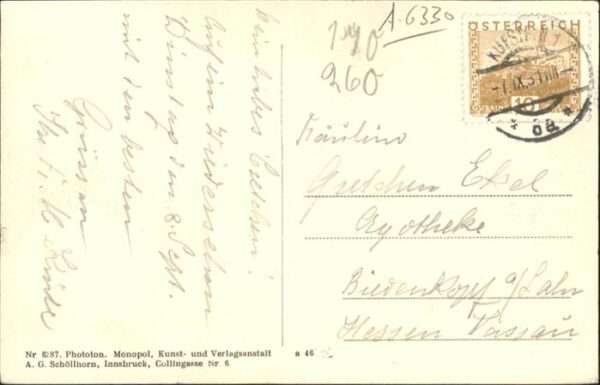 A.6330
140
260
ÖSTERREICH
KUFSTEIN 1
-1.IX.31
10
* 6a *
Mein liebes Gretchen!
Auf ein Wiedersehen
Dienstag den 8. Sept.
mit den besten
Grüssen
Fräulein
Gretchen Exel
Apotheke
Biedenkopf a/Lahn
Hessen Nassau
Nr 6287. Phototon. Monopol, Kunst- und Verlagsanstalt
A. G. Schöllhorn, Innsbruck, Collingasse Nr 6
s 46